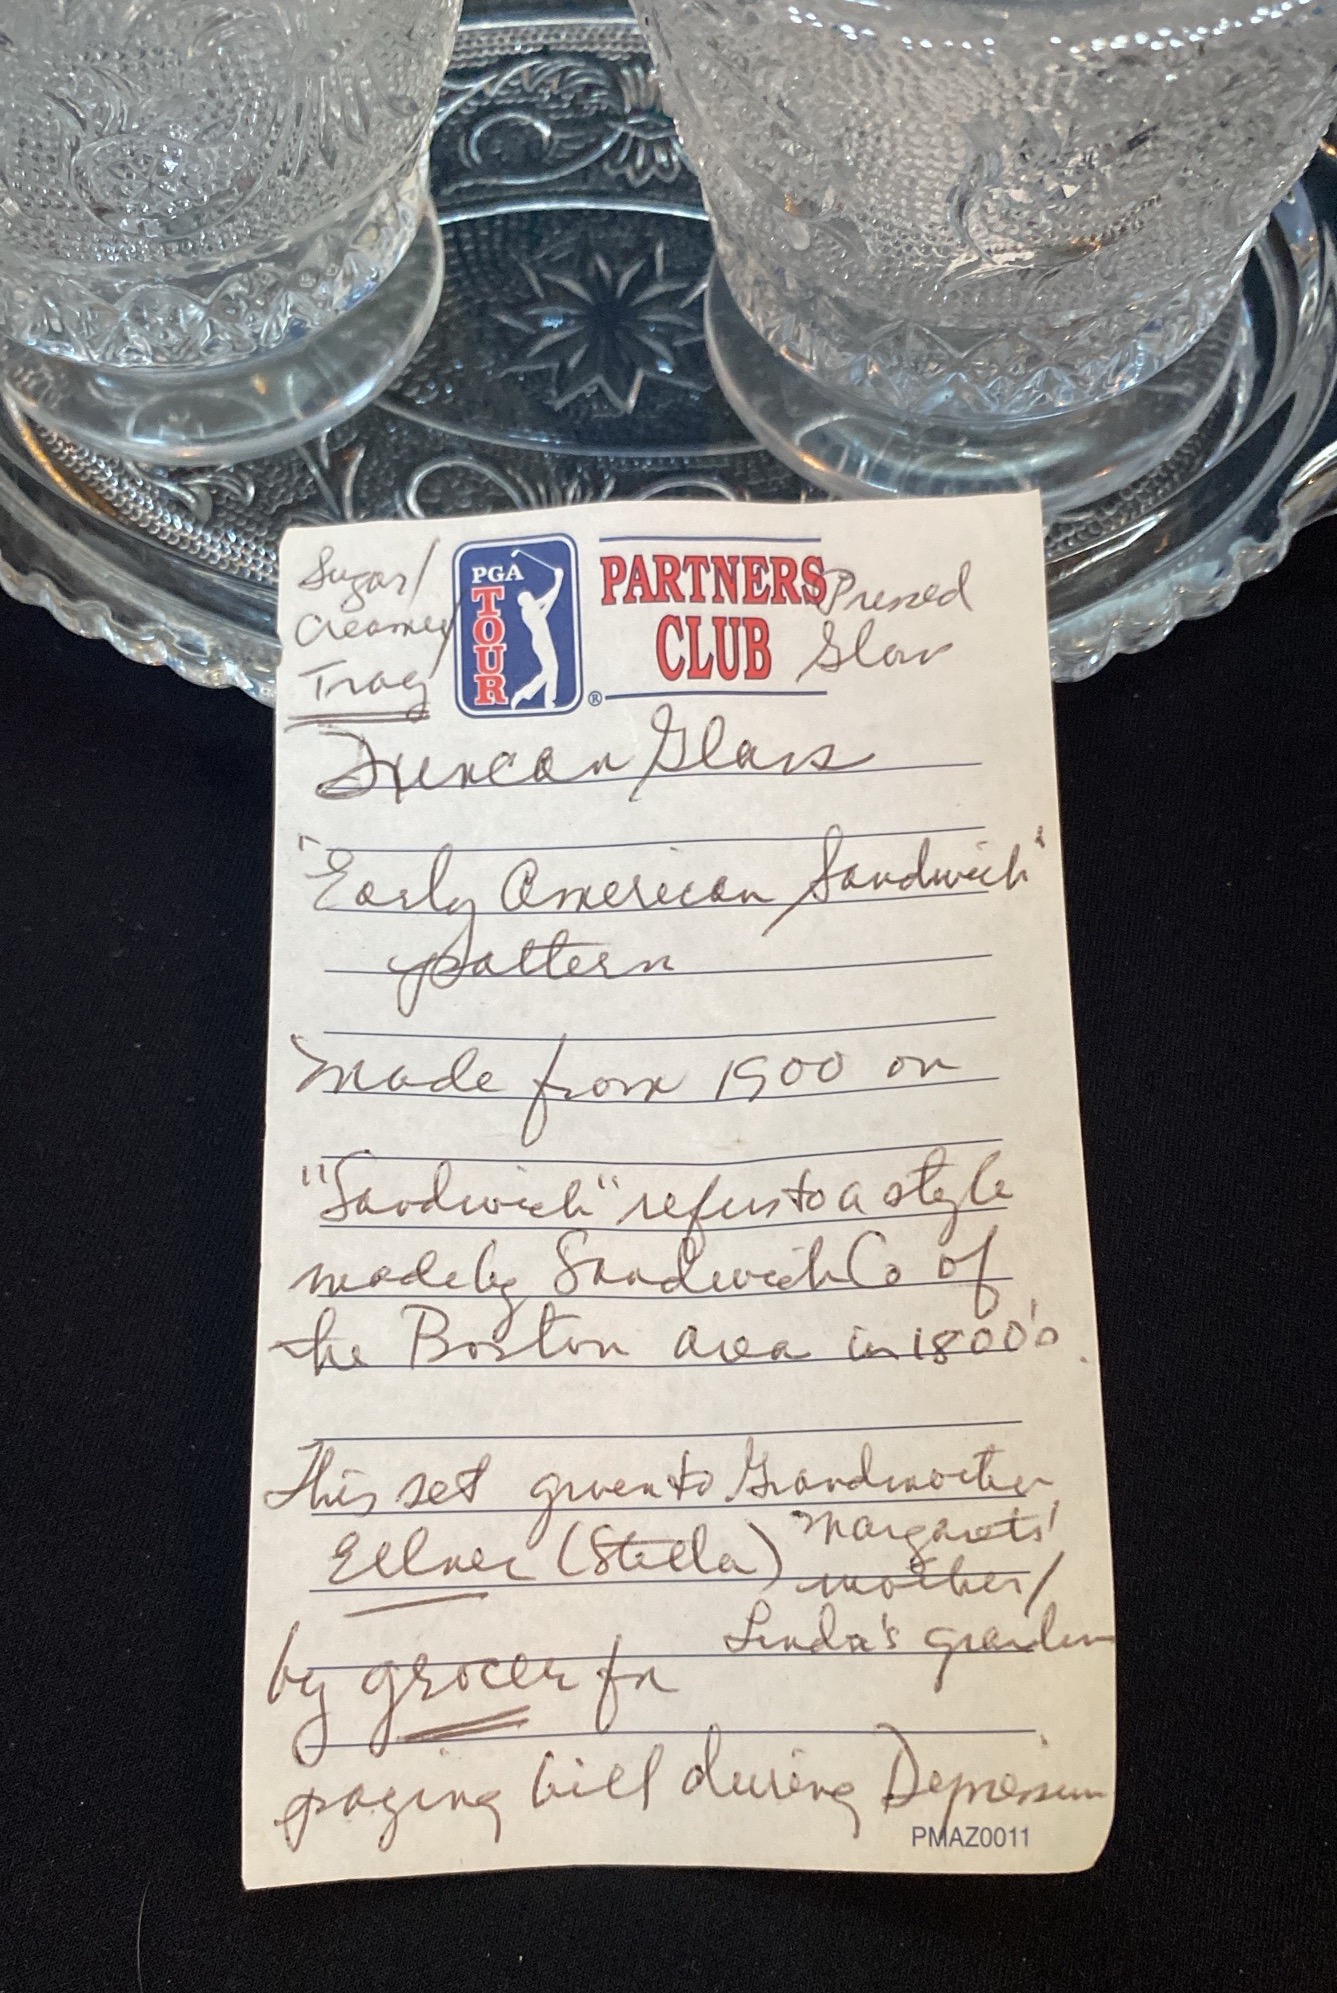 Sugar/
Creamer/
Tray
PGA
TOUR
®
PARTNERS
CLUB
Pressed
Glass
Duncan Glass
"Early American Sandwich"
pattern
Made from 1900 on
"Sandwich" refers to a style
made by Sandwich Co of
the Boston area in 1800's.
This set given to Grandmother
Ellner (Stella) Margarets'
mother/
Linda's grandm
by grocer for
paying bill during Depression
PMAZ0011